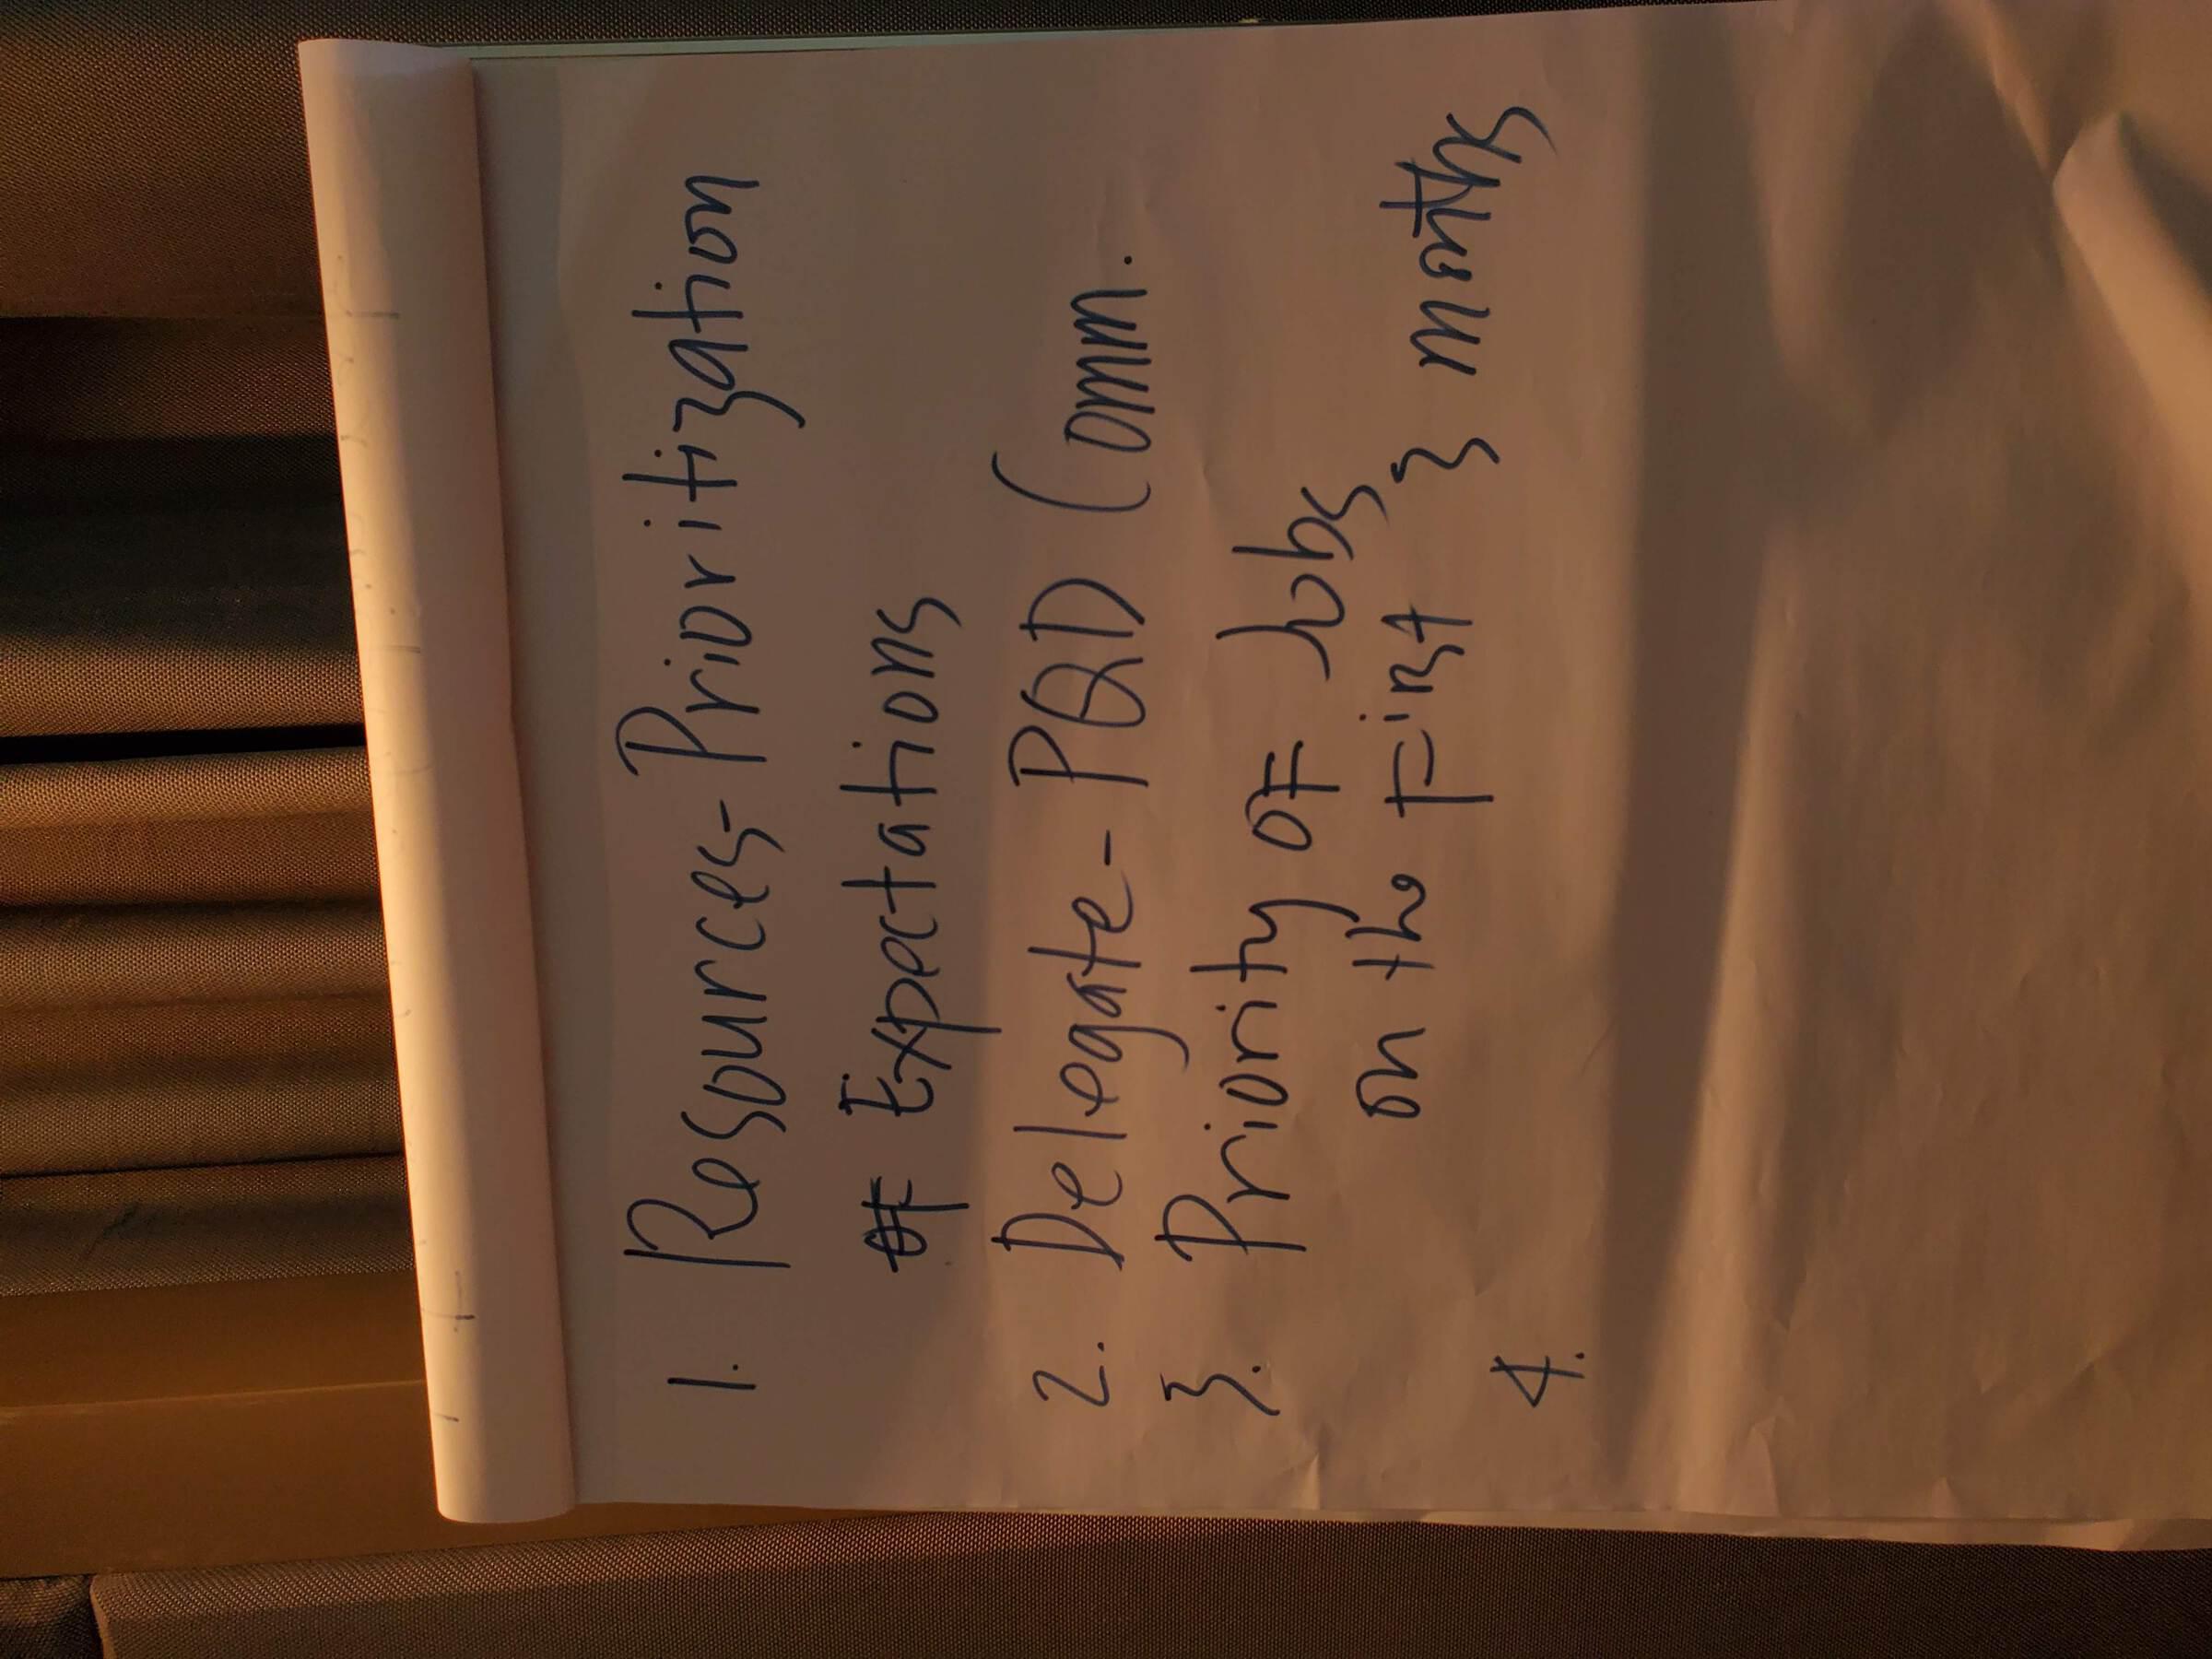 1. Resources- Prioritization
OF Expectations
2. Delegate- PQD Comm.
3. Priority OF Jobs
on the First & months
4.